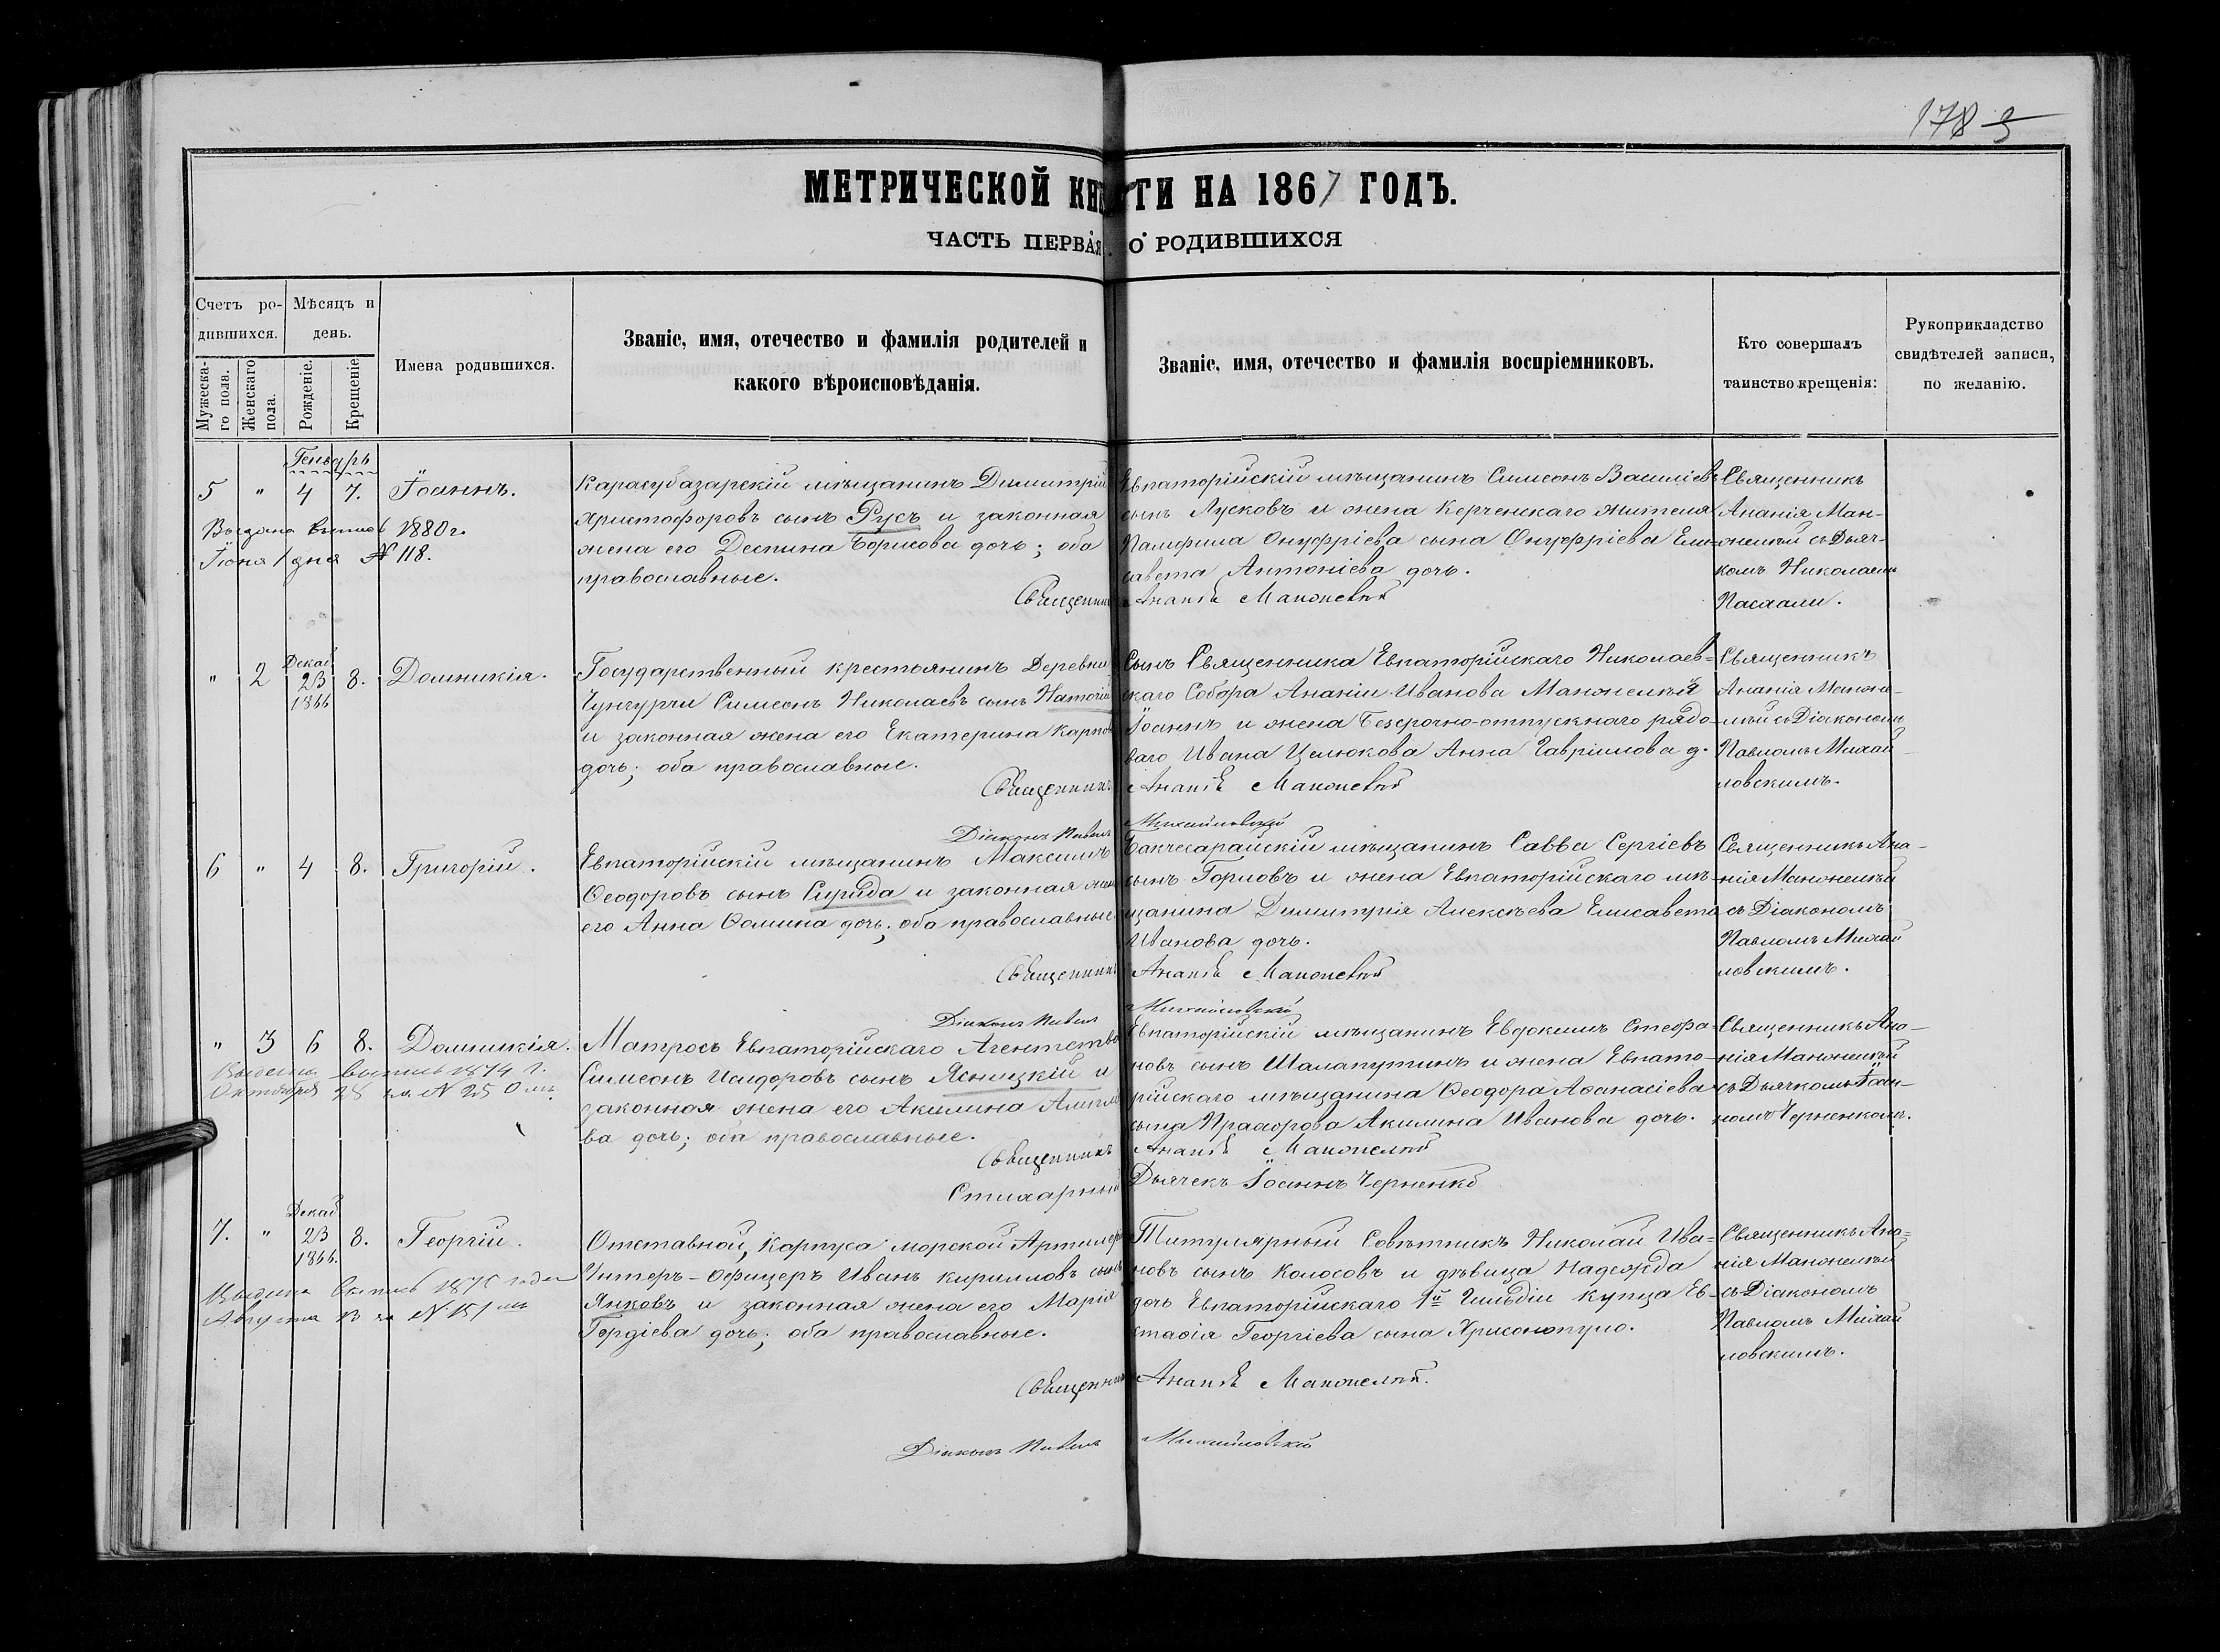 178
МЕТРИЧЕСКОЙ КНИГИ НА 1867 ГОДЪ.
ЧАСТЬ ПЕРВАЯ. О РОДИВШИХСЯ
Счетъ ро-
дившихся.
Мужеска-
го пола.
Женскаго
пола.
Мѣсяцъ и
день.
Рожденіе.
Крещеніе
Имена родившихся.
Званіе, имя, отечество и фамилія родителей и
какого вѣроисповѣданія.
Званіе, имя, отечество и фамилія воспріемниковъ.
Кто совершалъ
таинство крещенія:
Рукоприкладство
свидѣтелей записи,
по желанію.
Генварь
5 " 4 7. Іоаннъ.
Выдана 1880 г.
Іюня 1 дня № 118.
Карасубазарскій мѣщанинъ Димитрій
Христофоровъ сынъ Русъ и законная
жена его Деспина Борисова дочь; оба
православные.
Евпаторійскій мѣщанинъ Симеонъ Василіевъ
сынъ Лусковъ и жена Керченскаго жителя
Памфила Онуфріева сына Онуфріева Ели-
савета Антоніева дочь.
Священникъ Ананія
Священникъ
Ананія Ман-
желѣй съ Дьяч-
комъ Николаемъ
Пасхали.
" 2 Декаб. 23 1866 8. Домникія.
Государственный крестьянинъ Деревни
Чунгурчи Симеонъ Николаевъ сынъ
и законная жена его Екатерина Карпова
дочь; оба православные.
Сынъ Священника Евпаторійскаго Николаев-
скаго Собора Ананіи Иванова Манжелѣй
Іоаннъ и жена безсрочно-отпускнаго рядо-
ваго Ивана Целюкова Анна Гавріилова д.
Священникъ Ананія
Діаконъ Павелъ Михайловскій
Священникъ
Ананія Манже-
лѣй съ Діакономъ
Павломъ Михай-
ловскимъ.
6 " 4 8. Григорій.
Евпаторійскій мѣщанинъ Максимъ
Ѳеодоровъ сынъ Сирида и законная жена
его Анна Ѳомина дочь; оба православные
Бакчесарайскій мѣщанинъ Савва Сергіевъ
сынъ Горловъ и жена Евпаторійскаго мѣ-
щанина Димитрія Алексѣева Елисавета
Иванова дочь.
Священникъ Ананія
Діаконъ Павелъ Михайловскій
Священникъ Ана-
нія Манжелѣй
съ Діакономъ
Павломъ Михай
ловскимъ.
" 3 6 8. Домникія.
Выдана 1874 г.
Октября 28 за № 250
Матросъ Евпаторійскаго Агентства
Симеонъ Исидоровъ сынъ Ясницкій и
законная жена его Акилина
ва дочь; оба православные.
Евпаторійскій мѣщанинъ Евдокимъ Стефа-
новъ сынъ Шалапутинъ и жена Евпато-
рійскаго мѣщанина Ѳеодора Аѳанасіева
сына Акилина Иванова дочь.
Священникъ Ананія
Стихарный Дьячекъ Іоаннъ Черненко
Священникъ Ана-
нія Манжелѣй
съ Дьячкомъ Іоан-
номъ Черненкомъ.
7. " Декаб 23 1866. 8. Георгій.
Выдана года
Августа 13 за № 151
Отставной, Карпуса морской Артилеріи
Унтеръ-Офицеръ Иванъ Кирилловъ сынъ
Янковъ и законная жена его Марія
Гордіева дочь; оба православные.
Титулярный Совѣтникъ Николай Ива-
новъ сынъ Колосовъ и дѣвица Надежда
дочь Евпаторійскаго 1й Гильдіи купца Ев-
стафія Георгіева сына Хрисонопуло.
Священникъ Ананія
Діаконъ Павелъ Михайловскій
Священникъ Ана-
нія Манжелѣй
съ Діакономъ
Павломъ Михай
ловскимъ.